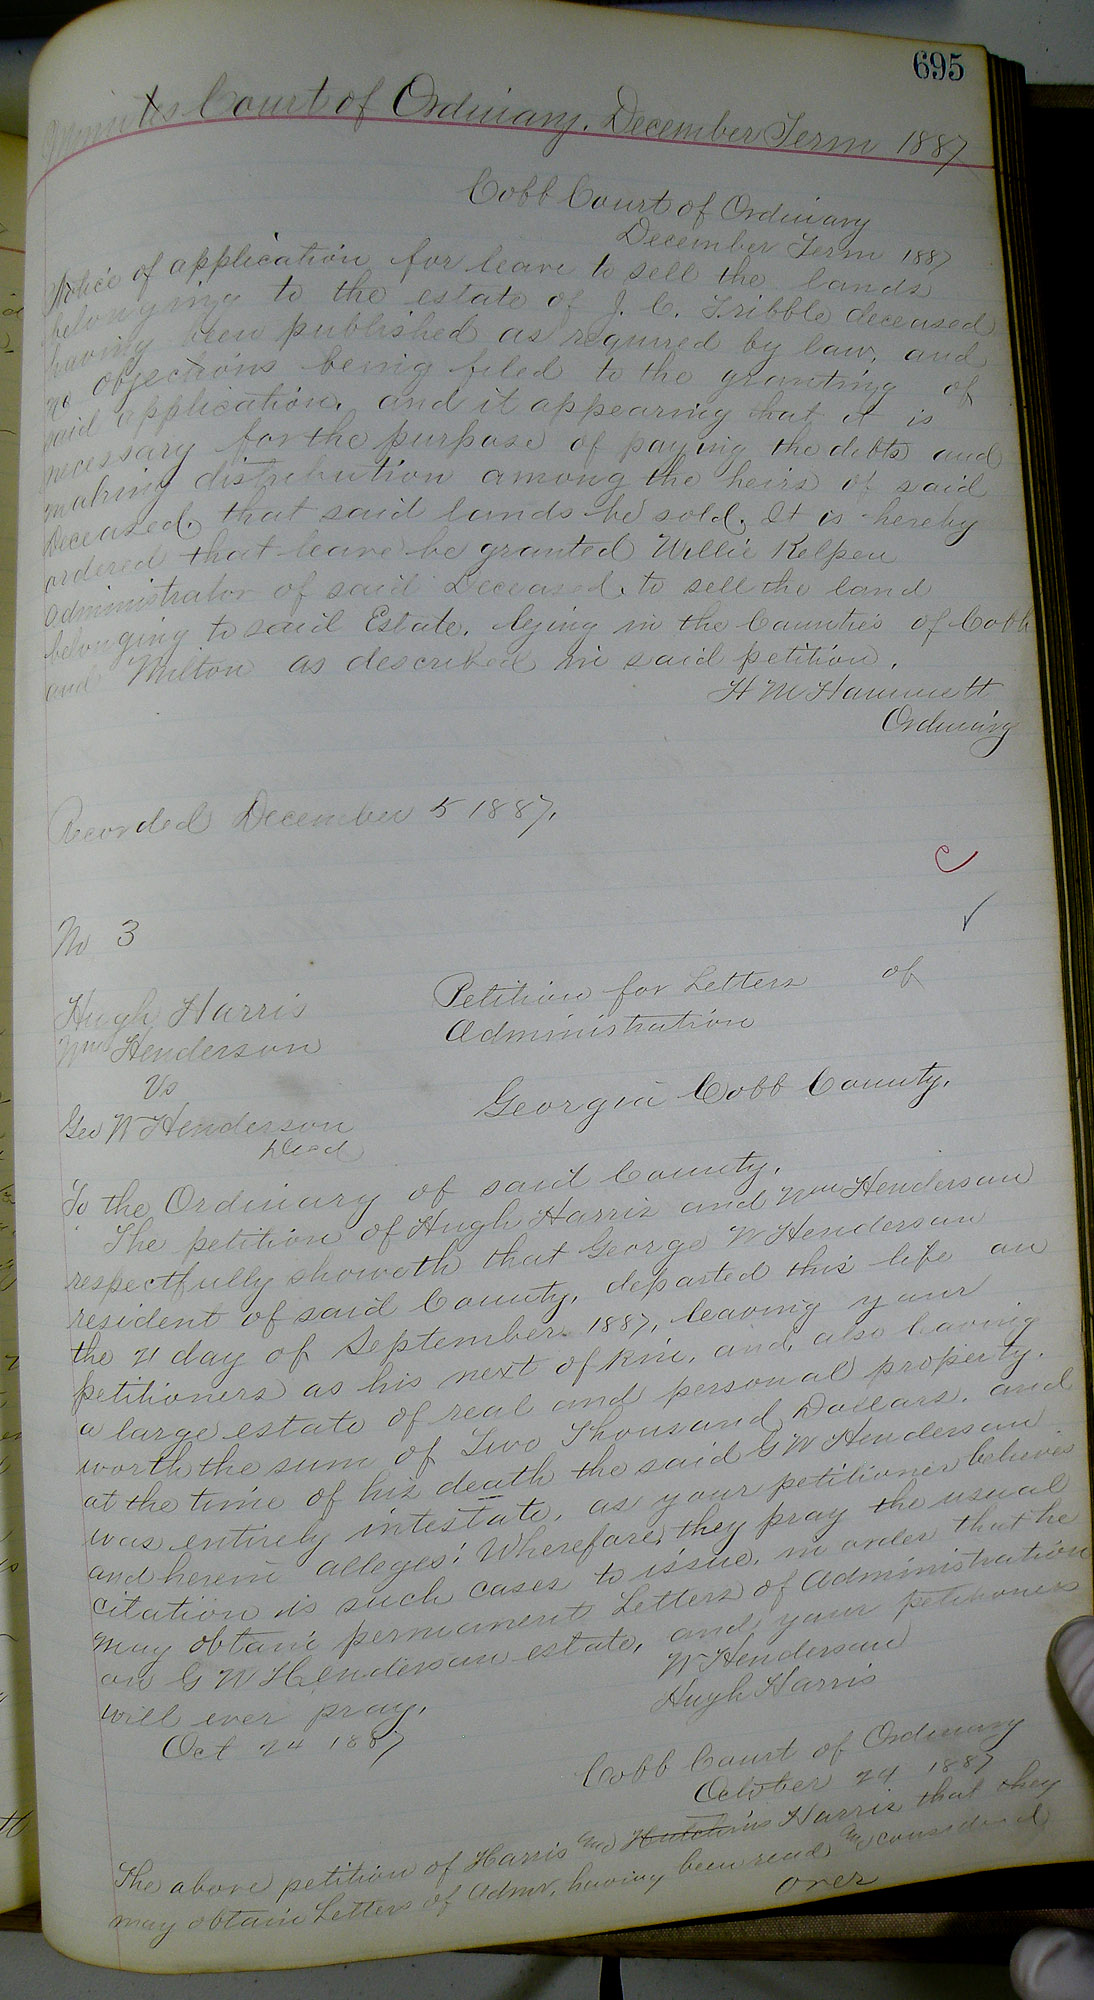 695
Minutes Court of Ordinary. December Term 1887
Cobb Court of Ordinary
December Term 1887
Notice of application for leave to sell the lands
belonging to the estate of J. C. Tribble deceased
having been published as required by law, and
no objections being filed to the granting of
said application, and it appearing that it is
necessary for the purpose of paying the debts and
making distribution among the heirs of said
deceased, that said lands be sold, It is hereby
ordered that leave be granted Willie Kelpen
administrator of said Deceased, to sell the land
belonging to said Estate, lying in the Counties of Cobb
and Milton as described in said petition.
H M Hammett
Ordinary
Recorded December 5 1887,
No 3
Hugh Harris
Wm Henderson
Vs
Geo W Henderson
Decd
Petition for Letters of
Administration
Georgia Cobb County,
To the Ordinary of said County,
The petition of Hugh Harris and Wm Henderson
respectfully showeth that George W Henderson
resident of said County, departed this life on
the 21 day of September 1887, leaving your
petitioners as his next of kin, and, also leaving
a large estate of real and personal property,
worth the sum of Two Thousand Dollars, and
at the time of his death the said G W Henderson
was entirely intestate, as your petitioner believes
and herein alleges; Wherefore, they pray the usual
citation is such cases to issue, in order that he
may obtain permanent Letters of Administration
on G W Henderson estate, and your petitioners
will ever pray,
W Henderson
Hugh Harris
Oct 24 1887
Cobb Court of Ordinary
October 24 1887
The above petition of Harris and Hutchins Harris that they
may obtain Letters of Admr, having been read and considered
over